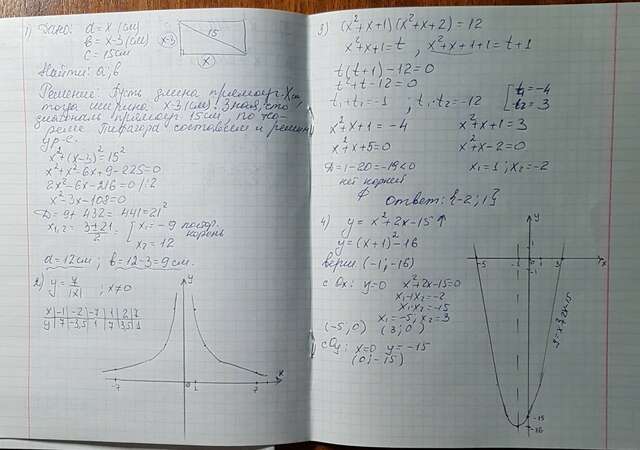 1) Дано: a = x (см)
b = x-3 (см)
c = 15 см
x-3
15
x
Найти: a, b
Решение: Пусть длина прямоуг. X см,
тогда ширина x-3 (см). Зная, что
диагональ прямоуг 15 см, по тео-
реме Пифагора составляем и решим
ур-е.
x²+(x-3)²=15²
x²+x²-6x+9-225=0
2x²-6x-216=0 |:2
x²-3x-108=0
D = 9+432=441=21²
x₁,₂ = (3±21)/2 = [x₁=-9 постор. корень
x₂=12
a = 12 см; b = 12-3 = 9 см.
2) y = 7/|x| ; x≠0
x -1 -2 -7 1 2 7
y 7 3,5 1 7 3,5 1
y
x
-7
0
1
7
3) (x²+x+1)(x²+x+2)=12
x²+x+1=t, x²+x+1+1=t+1
t(t+1)-12=0
t²+t-12=0
t₁+t₂=-1 ; t₁·t₂=-12
[t₁=-4
t₂=3
x²+x+1=-4
x²+x+1=3
x²+x+5=0
x²+x-2=0
D=1-20=-19<0
x₁=1; x₂=-2
нет корней
Ответ: {-2; 1}
4) y = x²+2x-15 ↑
y=(x+1)²-16
верш (-1; -16)
с Ox: y=0 x²+2x-15=0
x₁+x₂=-2
x₁·x₂=-15
x₁=-5; x₂=3
(-5; 0) (3; 0)
с Oy: x=0 y=-15
(0; -15)
y
1
-5
-1
0
1
3
x
-1
y=x²+2x-15
-15
-16